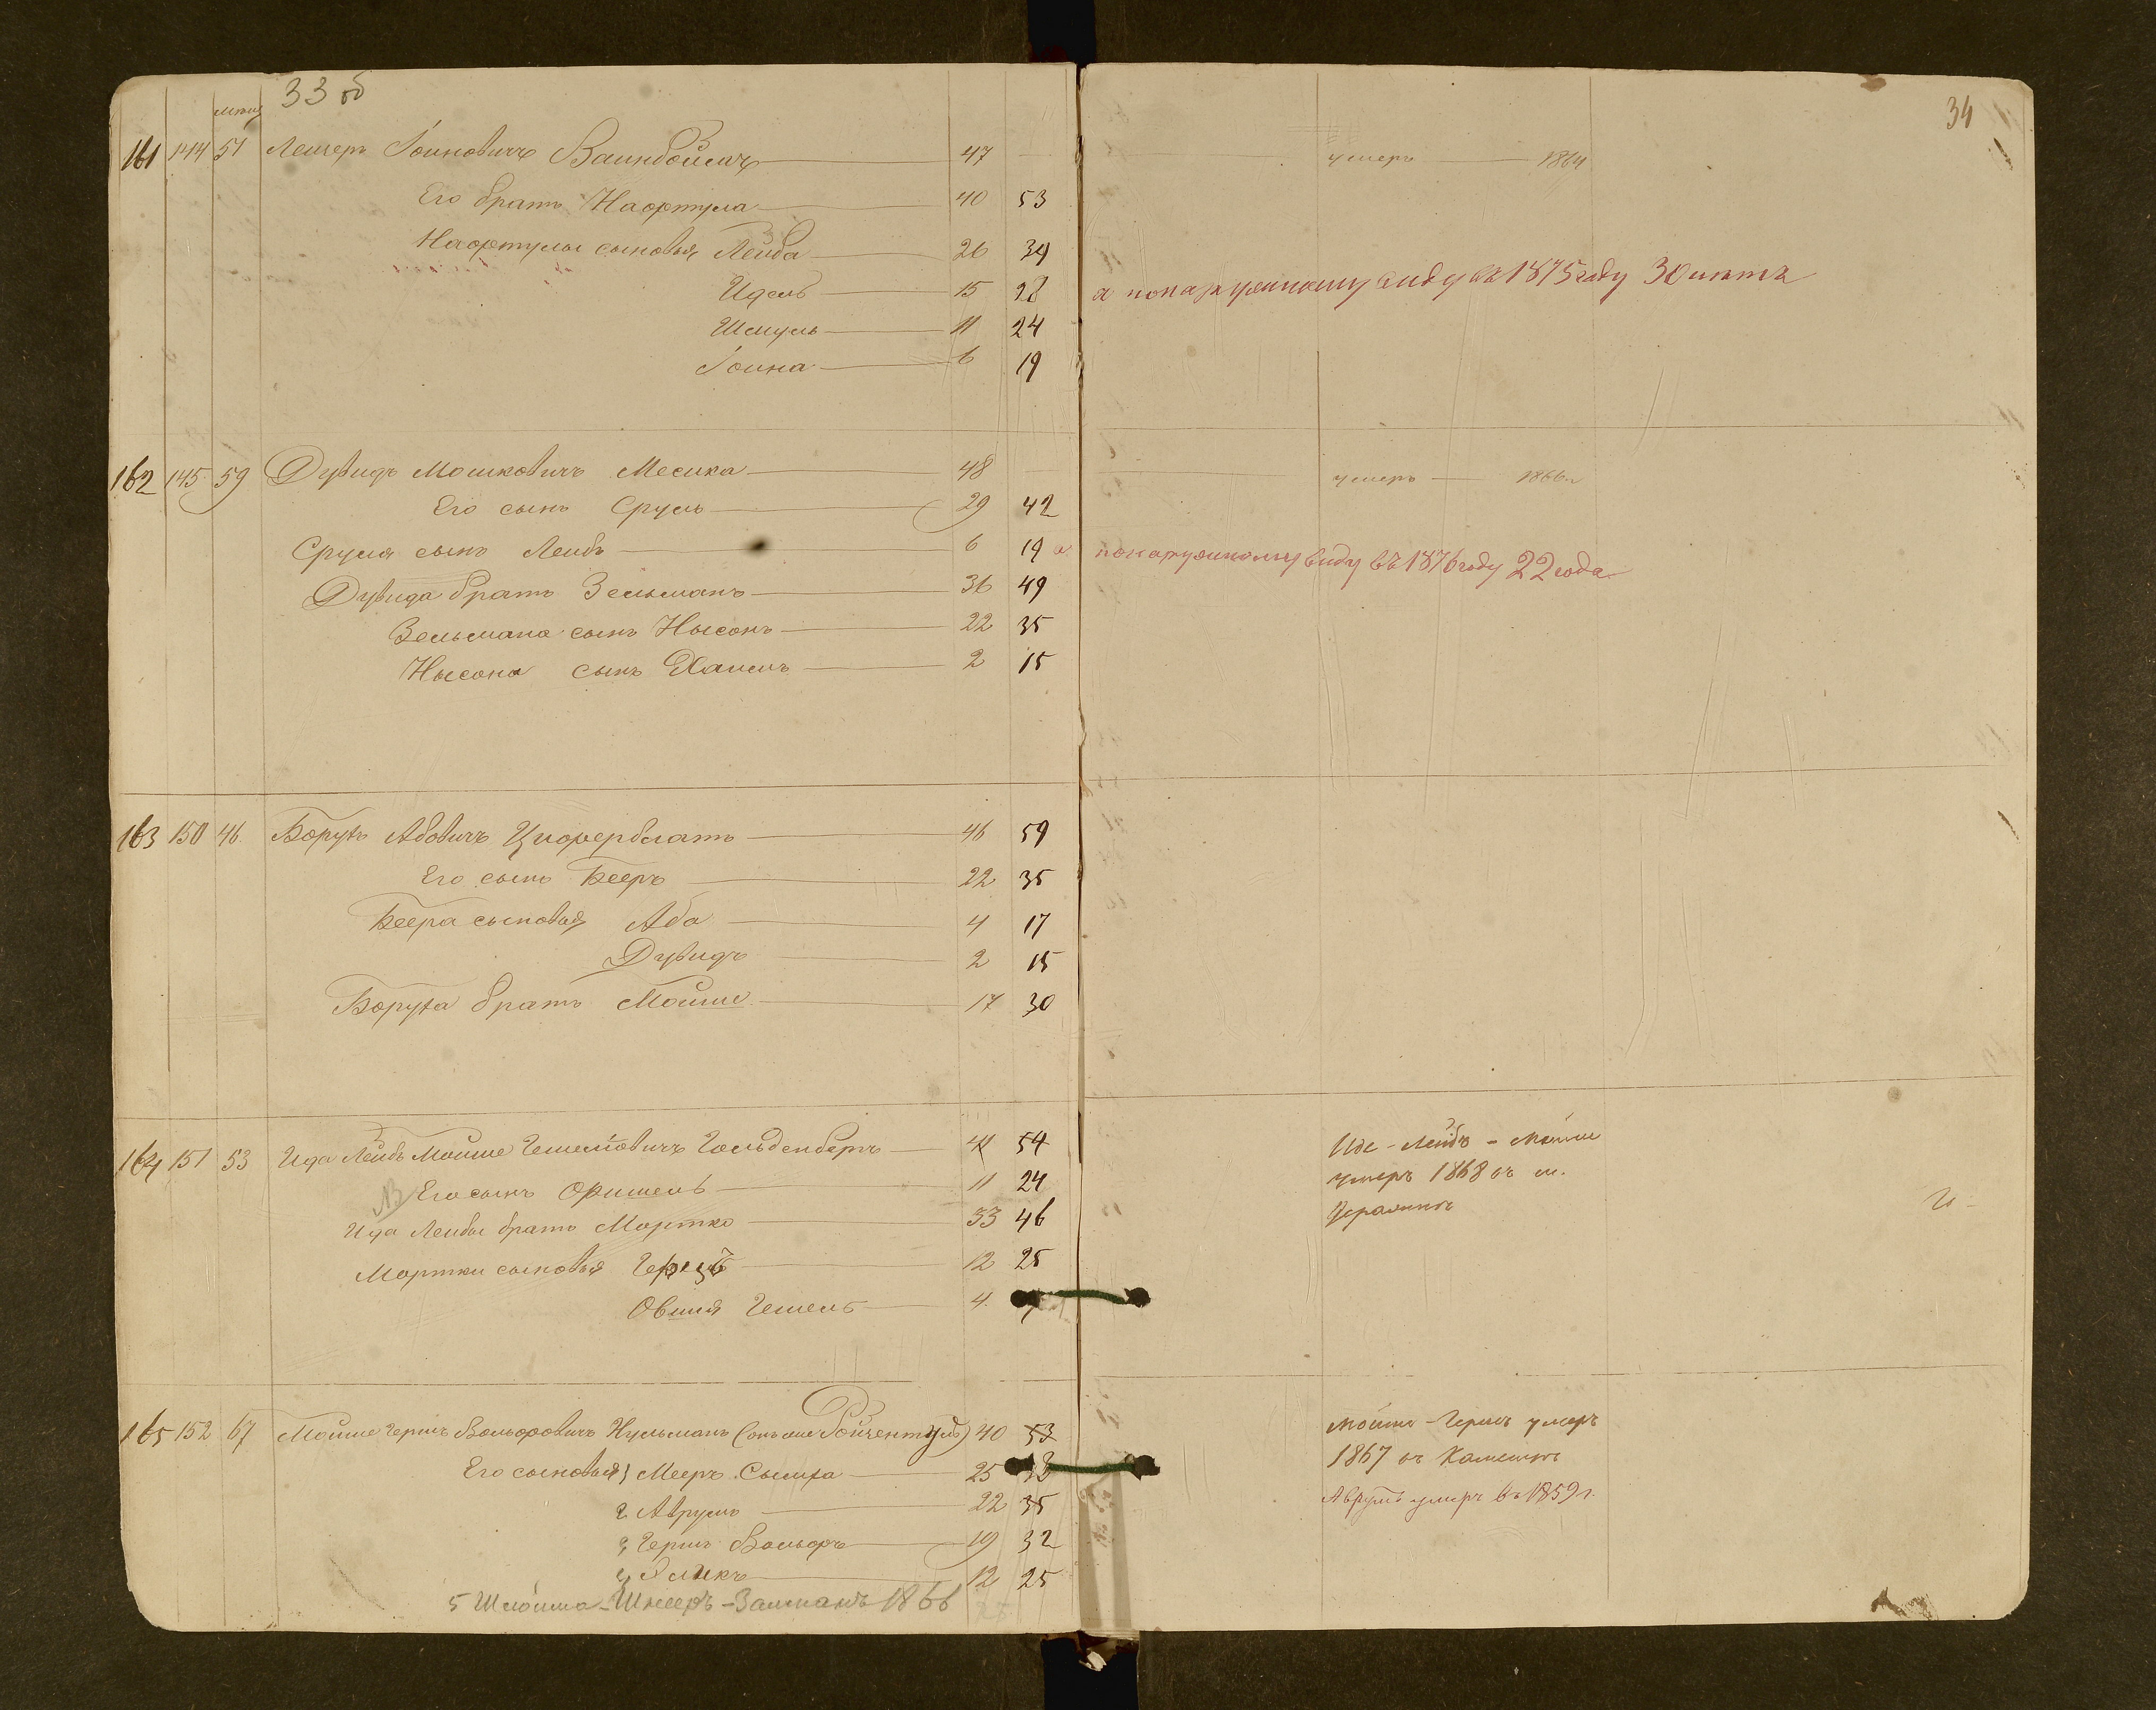 33 об
34
161 144 51 Лейзеръ Іоиновичъ Ваинбоимъ 47 умеръ 1864
Его братъ Нафтула 40 53
Нафтулы сыновья Лейба 26 39
Идель 15 28 а по наружному виду въ 1875 году 30 летъ
Шмуль 11 24
Іоина 6 19
162 145 59 Дувидъ Мошковичъ Месика 48 умеръ 1866 г
Его сынъ Сруль 29 42
Сруля сынъ Лейбъ 6 19 а по наружному виду въ 1876 году 22 года
Дувида братъ Зельманъ 36 49
Зельмана сынъ Нысонъ 22 35
Нысона сынъ Хаимъ 2 15
163 150 46 Борухъ Абовичъ Циферблатъ 46 59
Его сынъ Бееръ 22 35
Беера сыновья Аба 4 17
Дувидъ 2 15
Боруха братъ Мойше 17 30
164 151 53 Ида Лейбъ Мойше Гешелёвичъ Гольденберъ 41 54 Иде-Лейбъ-Мойше
умеръ 1868 въ м.
Его сынъ Фишель 11 24
Ида Лейбы братъ Мортко 33 46
Мортки сыновья Герщъ 12 25
Овшія Гешель 4
165 152 67 Мойше Гершъ Вольфовичъ Нусьманъ (онъ же Ройзентулъ) 40 53 Мойше-Гершъ умеръ
1867 въ Каменце
Его сыновья 1 Мееръ Сымха 25 38
2 Аврумъ 22 35 Аврумъ умеръ въ 1859 г.
3 Гершъ Вольфъ 19 32
4 Эликъ 12 25
5 Шлойма-Шнееръ-Залманъ 1866